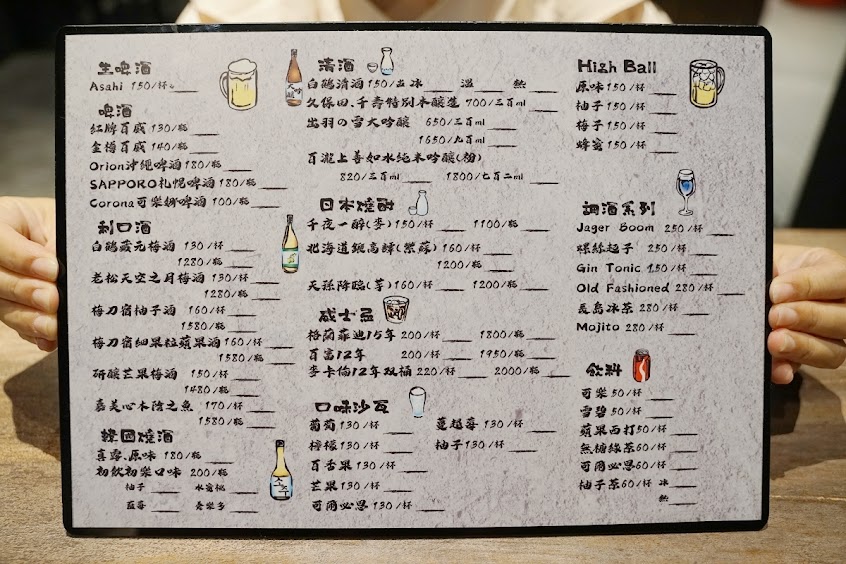 生啤酒
Asahi 150/杯
啤酒
紅牌百威 130/瓶
金樽百威 140/瓶
Orion沖繩啤酒 180/瓶
SAPPORO札幌啤酒 180/瓶
Corona可樂娜啤酒 100/瓶
利口酒
白鶴藏元梅酒 130/杯
1280/瓶
老松天空之月梅酒 130/杯
1280/瓶
梅乃宿柚子酒 160/杯
1580/瓶
梅乃宿細果粒蘋果酒 160/杯
1580/瓶
研釀芒果梅酒 150/杯
1480/瓶
嘉美心木陰之魚 170/杯
1580/瓶
韓國燒酒
真露.原味 180/瓶
初飲初樂口味 200/瓶
柚子 水蜜桃
藍莓 養樂多
清酒
白鶴清酒 150/壺 冰 溫 熱
久保田.千壽特別本釀造 700/三百ml
出羽の雪大吟釀 650/三百ml
1650/九百ml
百瀧上善如水純米吟釀(粉)
820/三百ml 1800/七百二ml
日本燒酎
千夜一醉(麥) 150/杯 1100/瓶
北海道纏高峰(紫蘇) 160/杯
1200/瓶
天孫降臨(芋) 160/杯 1200/瓶
威士忌
格蘭菲迪15年 200/杯 1800/瓶
百富12年 200/杯 1950/瓶
麥卡倫12年双桶 220/杯 2000/瓶
口味沙瓦
葡萄 130/杯 蔓越莓 130/杯
檸檬 130/杯 柚子 130/杯
百香果 130/杯
芒果 130/杯
可爾必思 130/杯
High Ball
原味 150/杯
柚子 150/杯
梅子 150/杯
蜂蜜 150/杯
調酒系列
Jager Boom 250/杯
螺絲起子 250/杯
Gin Tonic 150/杯
Old Fashioned 280/杯
長島冰茶 280/杯
Mojito 280/杯
飲料
可樂 50/杯
雪碧 50/杯
蘋果西打 50/杯
無糖綠茶 60/杯
可爾必思 60/杯
柚子茶 60/杯 冰
熱